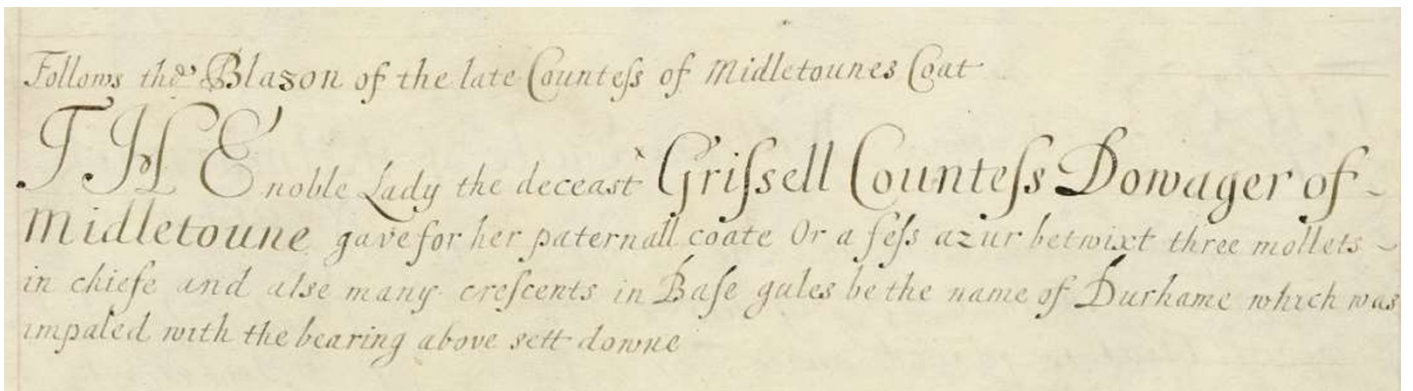 Follows the Blason of the late Countess of Midletounes Coat
THE noble Lady the deceast Grissell Countess Dowager of
Midletoune gave for her paternall coate Or a fess azur betwixt three mollets
in chiefe and alse many crescents in Base gules be the name of Durhame which was
impaled with the bearing above sett downe